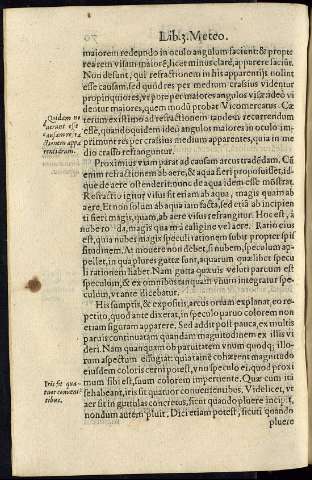 Lib.3. Meteo.
maiorem redeundo in oculo angulum faciunt: & propte
rea rem visam maiorē, licet minus clarè, apparere faciūt.
Non desunt, qui refractionem in his apparentijs nolint
esse causam, sed quòd res per medium crassius videntur
propinquiores, vt pote per maiores angulos visæ: ideò vi
dentur maiores, quem modū probat Vicomercatus. Cæ
terùm existimo ad refractionem tandem recurrendum
esse, quando quidem ideò angulos maiores in oculo im-
primunt res per crassius medium apparentes, quia in me
dio crasso refranguntur.
Quidam ne
causam re
ctionem appa
Proximius viam parat ad causam arcus tradēdam. Cū
enim refractionem ab aere, & aqua fieri proposuisset, id-
que de aere ostenderit: nunc de aqua idem esse mōstrat.
Refractio igitur visus fit etiam ab aqua, magis quam ab
aere. Et non solum ab aqua iam facta, sed etiā ab incipien
ti fieri magis, quam, ab aere visus refrangitur. Hoc est, à
nube rorida, magis quam à caligine vel aere. Ratio eius
est, quia nubes magis speculi rationem subit propter spis
situdinem. At mouere non debet, si nubem, speculum ap-
pellet, in qua plures guttæ sunt, aquarum quælibet specu
li rationem habet. Nam gutta quæuis veluti paruum est
speculum, & ex omnibus tanquam vnum integratur spe-
culum, vt ante dicebatur.
His sumptis, & expositis, arcus ortum explanat, eo re-
petito, quod ante dixerat, in speculo paruo colorem non
etiam figuram apparere. Sed addit post pauca, ex multis
paruis continuatis quandam magnitudinem ex illis vi
deri. Nam quanquam ob paruitatem vnum quodq; illo-
rum aspectum effugiat: quia tamē cohærent magnitudo
eiusdem coloris cerni potest, vnū speculo ei, quod proxi
mum sibi est, suum colorem impertiente. Quæ cum ita
Iris fit qua-
tuor conuenien
tibus.
se habeant, iris fit quatuor conuenientibus. Videlicet, vt
aer sit in guttulas concretus, sicut quando pluere incipit,
nondum autem pluit. Dici etiam potest, sicuti quando
pluere